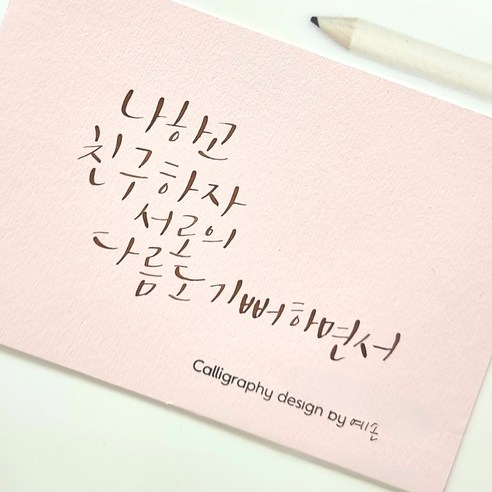 나하고
친구하자
서로의
다름도 기뻐하면서
Calligraphy design by 예손